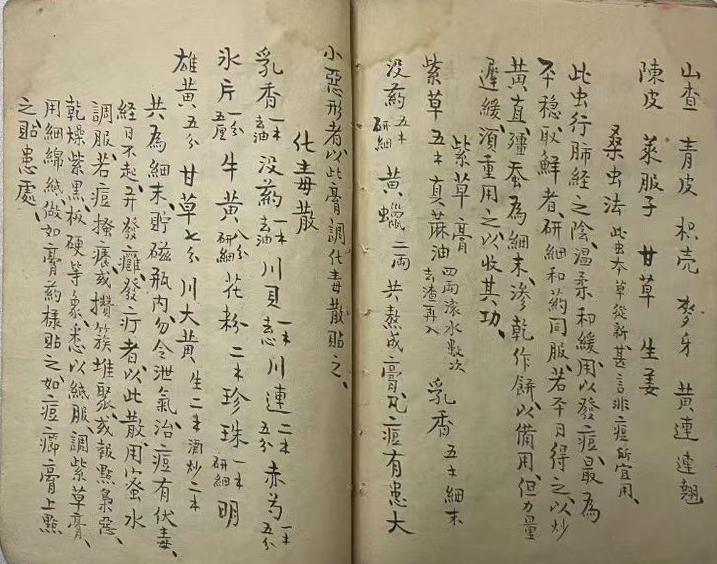 山查 青皮 枳壳 麥牙 黄連 連翹
陳皮 萊服子 甘草 生姜
桑虫法 此虫本草從新甚言非痘所宜用、
此虫行肺經之陰、温柔和緩、用以發痘、最為
平穩、取鮮者、研細和药同服、若平日得之、以炒
黄直殭蚕為細末、滲乾作餅、以備用、但力量
遲緩、須重用之、以收其功、
紫草膏
紫草 五土 真蔴油 四兩滚水数次去渣再入 乳香 五土細末
没药 五土研細 黄蠟 二兩 共熬成膏、凡痘有患大
小惡形者、以此膏調化毒散貼之、
化毒散
乳香 一土去油 没药 一土去油 川貝 一土去心 川連 二土五分 赤芍 一土五分
氷片 一分五厘 牛黄 八分研細 花粉 二土 珍珠 一土研細 明
雄黄 五分 甘草 七分 川大黄 生二土酒炒二土
共為細末、貯磁瓶内、勿令泄氣、治痘有伏毒、
経日不起、并發癰發疔者、以此散、用 水
調服、若痘搔癢、或攢簇堆聚、或報點 惡、
乾燥紫黑、板硬等象、悉以紙服、調紫草膏、
用細綿紙、做如膏药樣貼之、如痘癤膏上點
之貼患處、